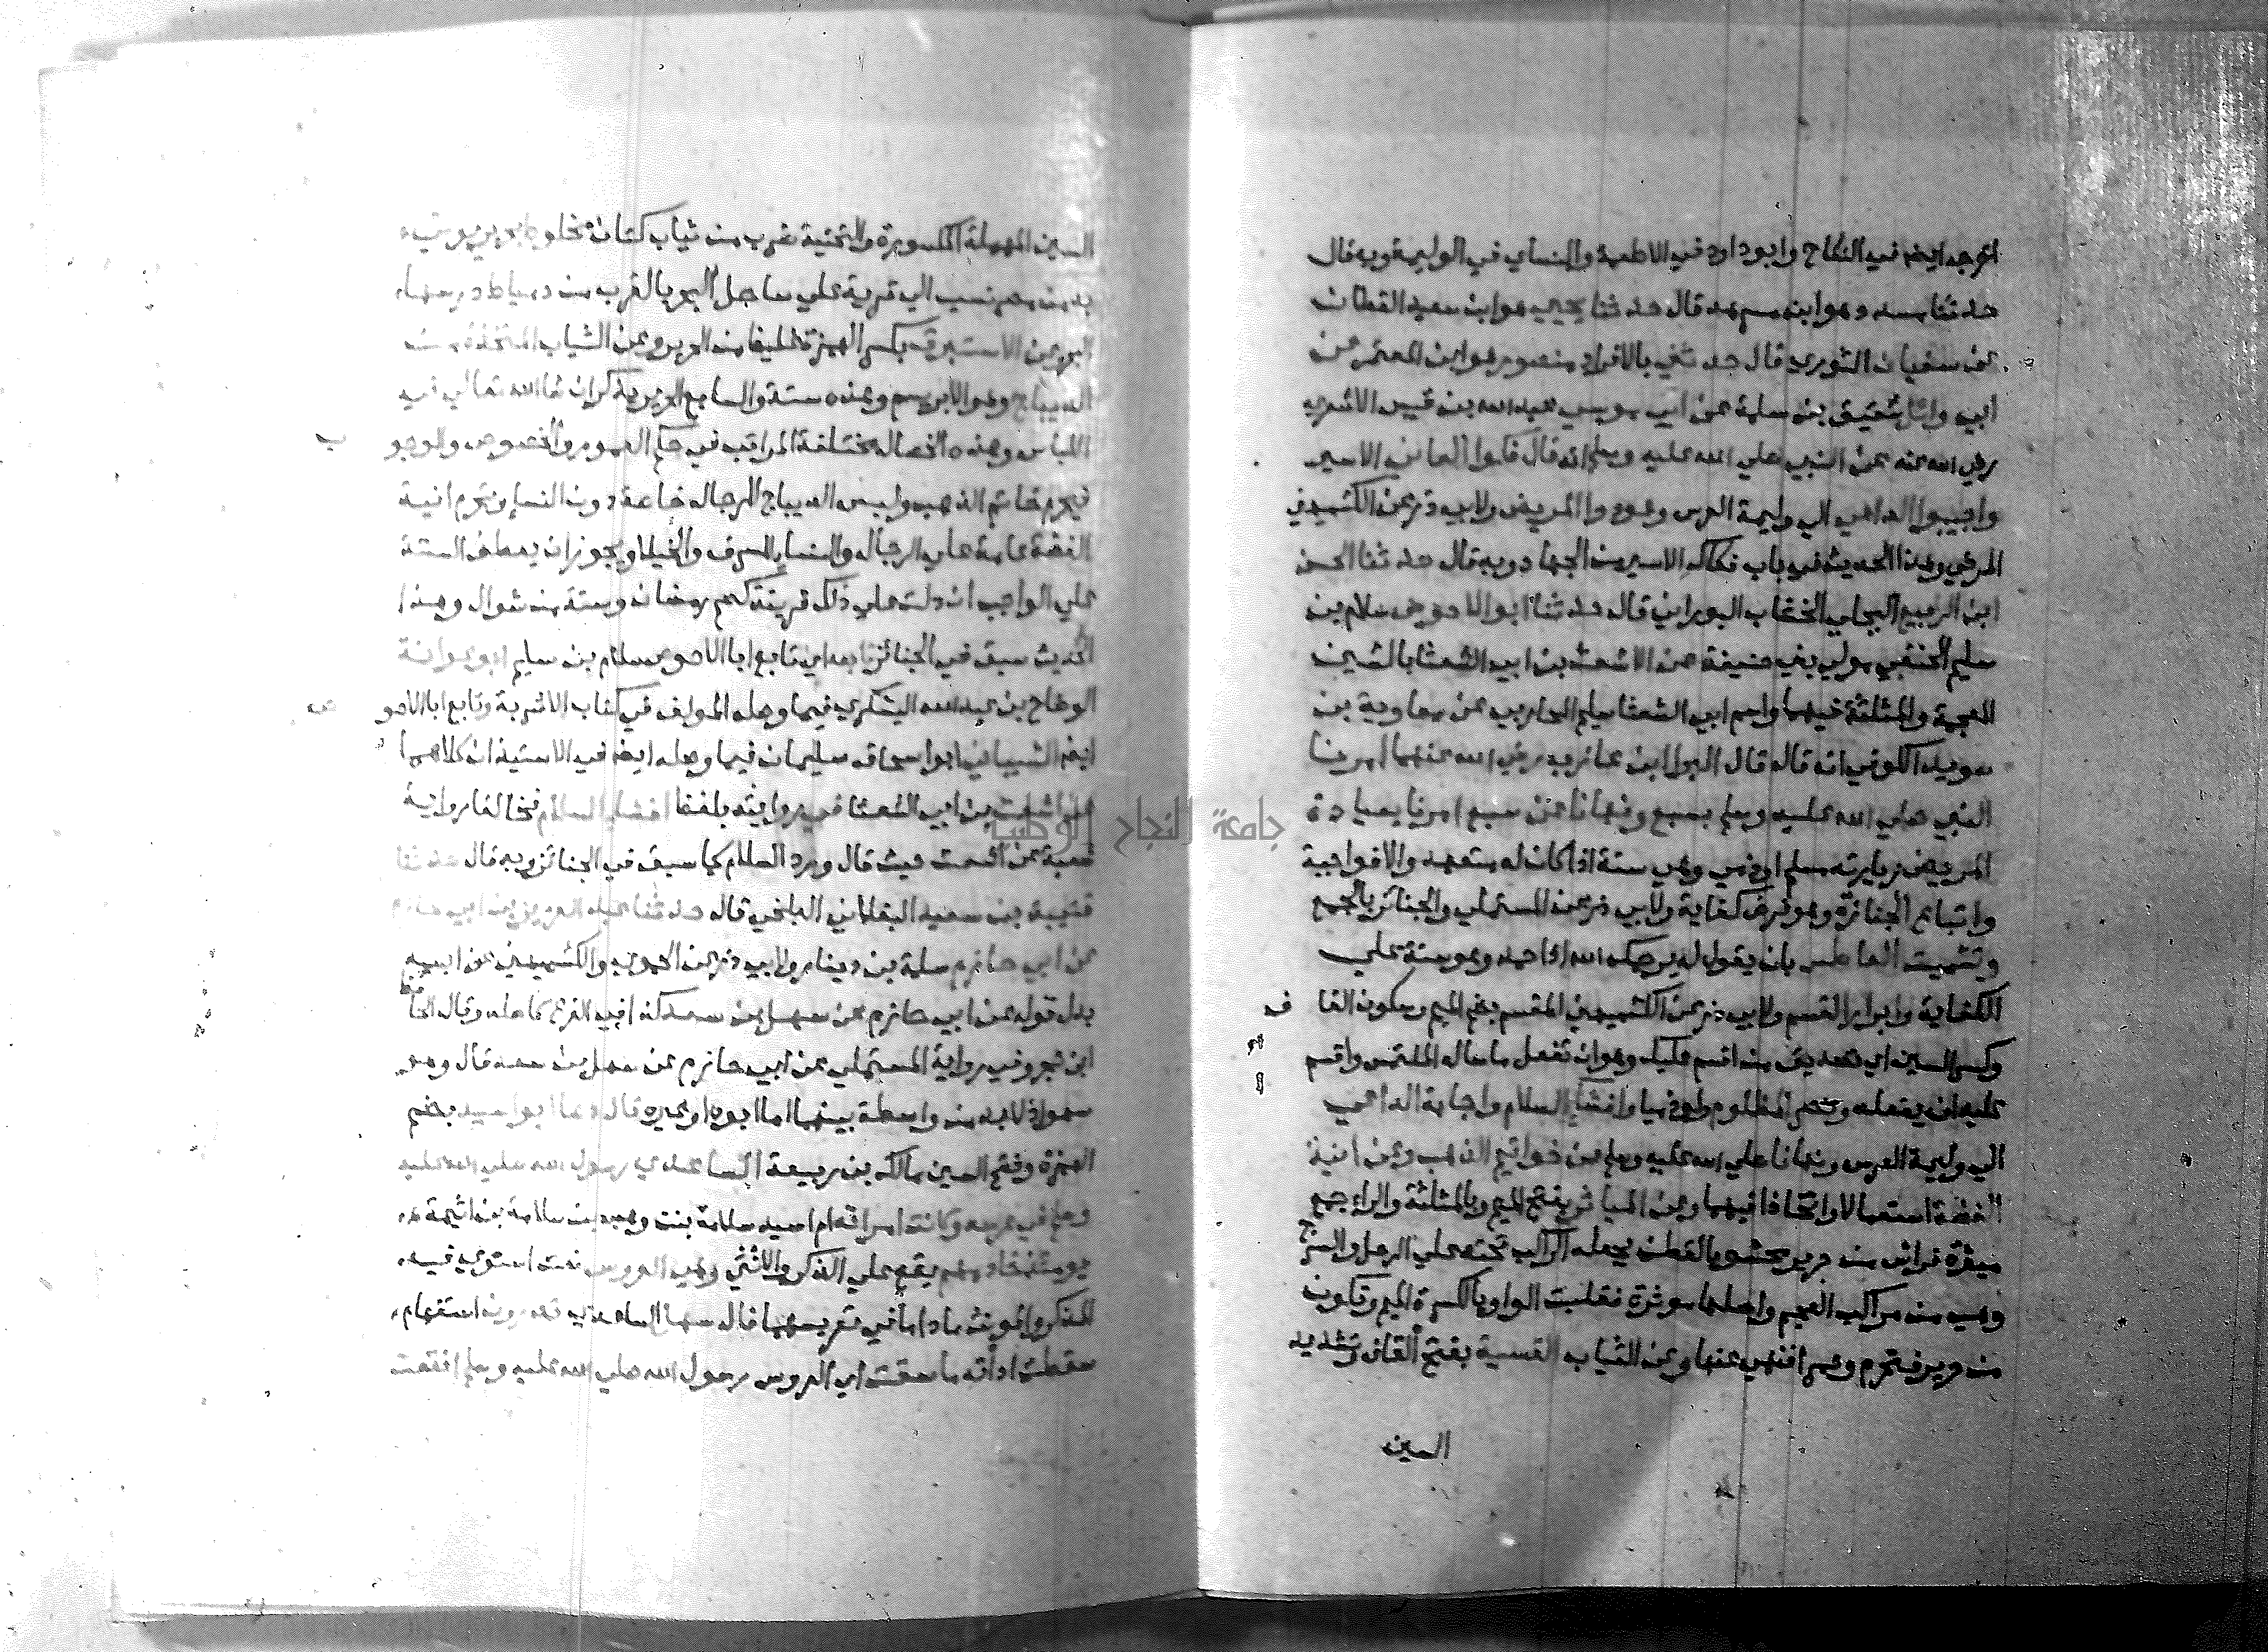 اخرجه ايضا في النكاح وابوداود في الاطعمة والنساي في الوليمة وبه قال
حدثنا مسدد هو ابن مسرهد قال حدثنا يحيي هو ابن سعيد القطان
عن سفيان الثوري قال حدثني بالافراد منصور هو ابن المعتمر عن
ابي وائل شقيق بن سلمة عن ابي موسي عبدالله بن قيس الاشعري
رضي الله عنه عن النبي صلي الله عليه وسلم انه قال فكوا العاني الاسير
واجيبوا الداعي الي وليمة العرس وعودوا المريض ولابي ذر عن الكشميهني
المرضي وهذا الحديث في باب فكاك الاسير من الجهاد وبه قال حدثنا الحسن
ابن الربيع البجلي الخشاب البوراني قال حدثنا ابوالاحوص سلام بن
سليم الحنفي مولي بني حنيفة عن الاشعث بن ابي الشعثا بالشين
المعجمة والمثلثة فيهما واسم ابي الشعثا سليم المحاربي عن معاوية بن
سويد الكوفي انه قال قال البرا ابن عازب رضي الله عنهما امرنا
النبي صلي الله عليه وسلم بسبع ونهانا عن سبع امرنا بعيادة
المريض زيارته مسلم اوذمي وهي سنة اذا كان له متعهد والا فواجبة
واتباع الجنازة وهو فرض كفاية ولابي ذر عن المستملي والجنائز بالجمع
وتشميت العاطس بان يقول له يرحمك الله اذا حمد وهو سنة علي
الكفاية وابرار القسم ولابي ذر عن الكشميهني المقسم بضم الميم وسكون القا ف
وكسر السين اي تصديق من اقسم عليك وهو ان تفعل ما ساله الملتمس واقسم
عليه ان يفعله ونصر المظلوم ولو ذميا وافشا السلام واجابة الداعي
الي وليمة العرس ونهانا صلي الله عليه وسلم عن خواتيم الذهب وعن انية
الفضة استعمالا واتخاذا فيهما وعن المياثر بفتح الميم وبالمثلثة والراء جمع
ميثرة فراش من حرير محشو بالقطن يجعله الراكب تحته علي الرحل والسرج
وهي من مراكب العجم واصلها موثرة فقلبت الواو يا لكسرة الميم وتكون
من حرير فتحرم وعن الثياب القسية بفتح القاف وتشديد
السين
السين المهملة المكسورة والتحتية ضرب من ثياب كتان مخلوط بحرير يوتي
به من مصر نسب الي قرية علي ساحل البحر بالقرب من دمياط
وعن الاستبرق بكسر الهمزة غليظ من الحرير وعن الثياب المتخذة من
الديباج وهو الابريسم وهذه ستة والسابع الحرير يذكر ان شا الله تعالي في
اللباس وهذه الخصال مختلفة المراتب في حكم العموم والخصوص والوجو ب
فيحرم خاتم الذهب ولبس الديباج للرجال خاصة دون النسا وتحرم انية
الفضة عامة علي الرجال والنسا للسرف والخيلا ويجوز ان يعطف السنة
علي الواجب ان دلت علي ذلك قرينة كصم رمضان وستة من شوال وهذا
الحديث سبق في الجنائز تابعه اي تابع ابا الاحوص سلام بن سليم ابو عوانة
الوضاح بن عبدالله اليشكري فيما وصله المولف في كتاب الاشربة وتابع ابا الاحو ص
ايضا الشيباني ابو اسحاق سليمان فيما وصله ايضا في الاستيذان كلاهما
عن اشعث بن ابي الشعثا في روايته بلفظ افشا السلام فخالفا رواية
شعبة عن اشعث حيث قال ورد السلام كما سبق في الجنائز وبه قال حدثنا
قتيبة بن سعيد البغلاني البلخي قال حدثنا عبد العزيز بن ابي حازم
عن ابي حازم سلمة بن دينار ولابي ذر عن الحموي والكشميهني عن ابيه
بدل قوله عن ابي حازم عن سهل بن سعد كذا في الفرع كاصله وقال الحافظ
ابن حجر وفي رواية المستملي عن ابي حازم عن سهل بن سعد قال وهو
سهو اذ لابد من واسطة بينهما اما ابوه او غيره قال دعا ابو اسيد بضم
الهمزة وفتح السين مالك بن ربيعة الساعدي رسول الله صلي الله عليه
وسلم في عرسه وكانت امراته ام اسيد سلامة بنت وهيب بن سلامة بن اميمة
يومئذ خادمهم يقع علي الذكر والانثي وهي العروس نعت استوي فيه
المذكر والمونث ما داما في تعريسهما قال سهل الساعدي تدرون استفهام
سقطت اداته ما سقت اي العروس رسول الله صلي الله عليه وسلم انقعت
جامعة النجاح الوطنية